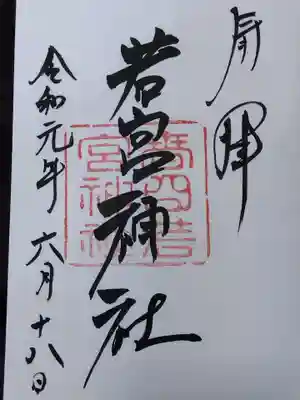 奉拝
若宮神社
宮神社
令和元年 六月十八日